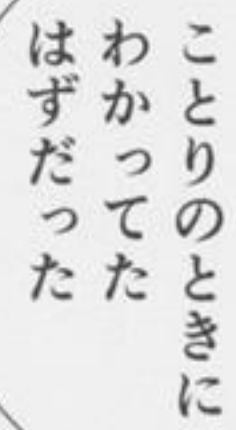 ことりのときに
わかってた
はずだった